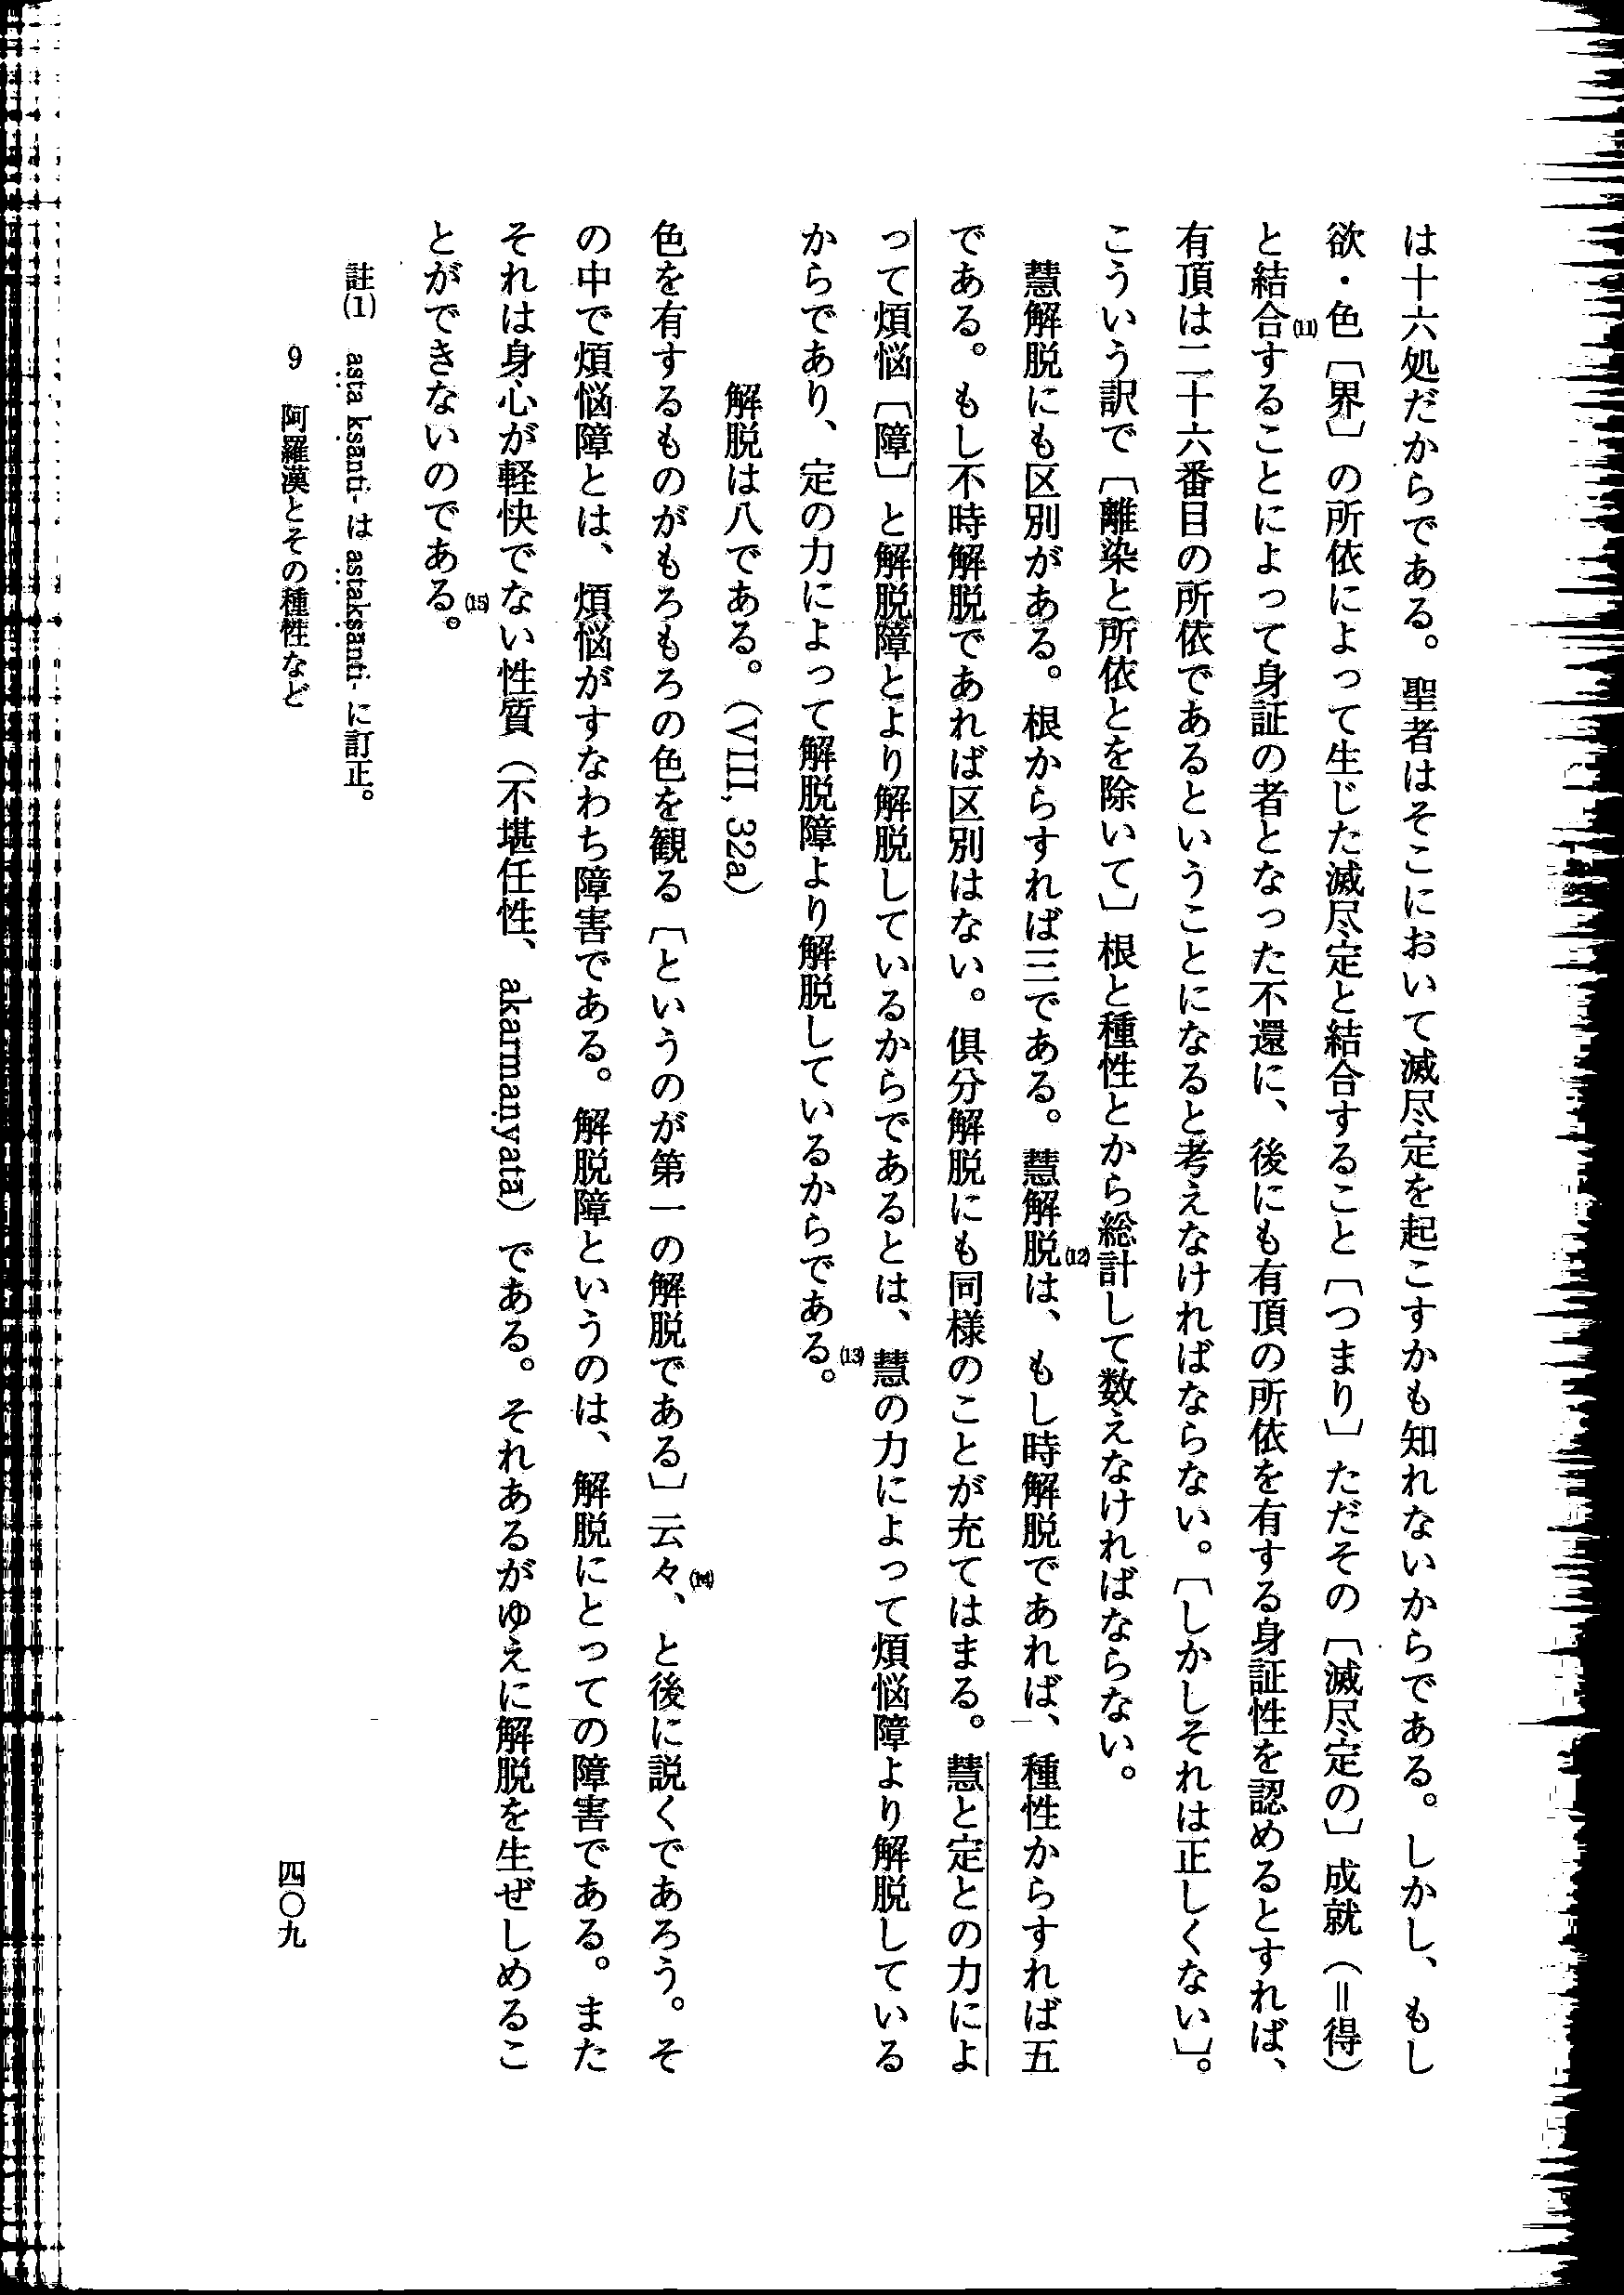 は十六処だからである。聖者はそこにおいて滅尽定を起こすかも知れないからである。しかし、もし
欲・色〔界〕の所依によって生じた滅尽定と結合すること〔つまり〕ただその〔滅尽定の〕成就（＝得）
と結合(11)することによって身証の者となった不還に、後にも有頂の所依を有する身証性を認めるとすれば、
有頂は二十六番目の所依であるということになると考えなければならない。〔しかしそれは正しくない〕。
こういう訳で〔離染と所依とを除いて〕根と種性とから総計して数えなければならない。
慧解脱にも区別がある。根からすれば三である。慧解脱(12)は、もし時解脱であれば、種性からすれば五
である。もし不時解脱であれば区別はない。俱分解脱にも同様のことが充てはまる。慧と定との力によ
って煩悩〔障〕と解脱障とより解脱しているからであるとは、慧の力によって煩悩障より解脱している
からであり、定の力によって解脱障より解脱しているからである。(13)
解脱は八である。（VIII, 32a）
色を有するものがもろもろの色を観る〔というのが第一の解脱である〕云々(14)、と後に説くであろう。そ
の中で煩悩障とは、煩悩がすなわち障害である。解脱障というのは、解脱にとっての障害である。また
それは身心が軽快でない性質（不堪任性、akarmaṇyatā）である。それあるがゆえに解脱を生ぜしめるこ
とができないのである。(15)
註(1) aṣṭa kṣānti- は aṣṭakṣānti- に訂正。
9 阿羅漢とその種性など
四〇九